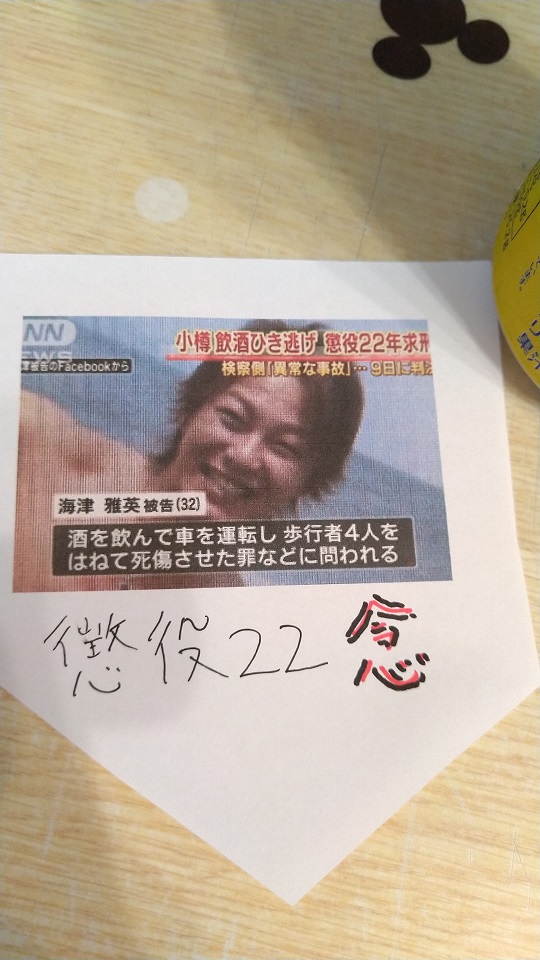 NN
NEWS
小樽 飲酒ひき逃げ 懲役22年求刑
被告のFacebookから
検察側「異常な事故」… 9日に判決
海津 雅英 被告(32)
酒を飲んで車を運転し 歩行者4人を
はねて死傷させた罪などに問われる
懲役22念
果汁